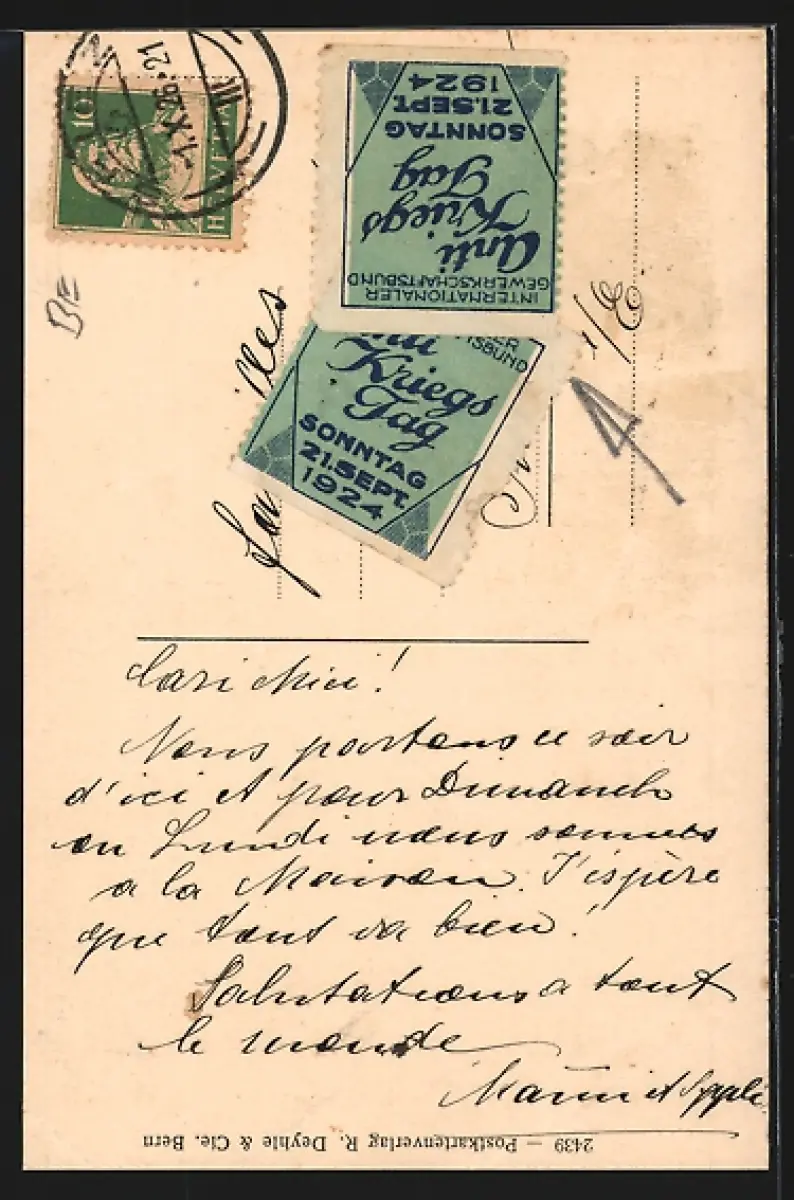 10
HELVETIA
-1.X.25.-21
III
INTERNATIONALER
GEWERKSCHAFTSBUND
Anti
Kriegs
Tag
SONNTAG
21.SEPT.
1924
Kriegs
Tag
SONNTAG
21.SEPT.
1924
BE
4
Cari Mici!
Nous partons ce soir
d'ici et pour Dimanch
ou Lundi nous sommes
a la Maison. J'espère
que tout va bien!
Salutations a tout
le monde
2439 — Postkartenverlag R. Deyhle & Cie. Bern